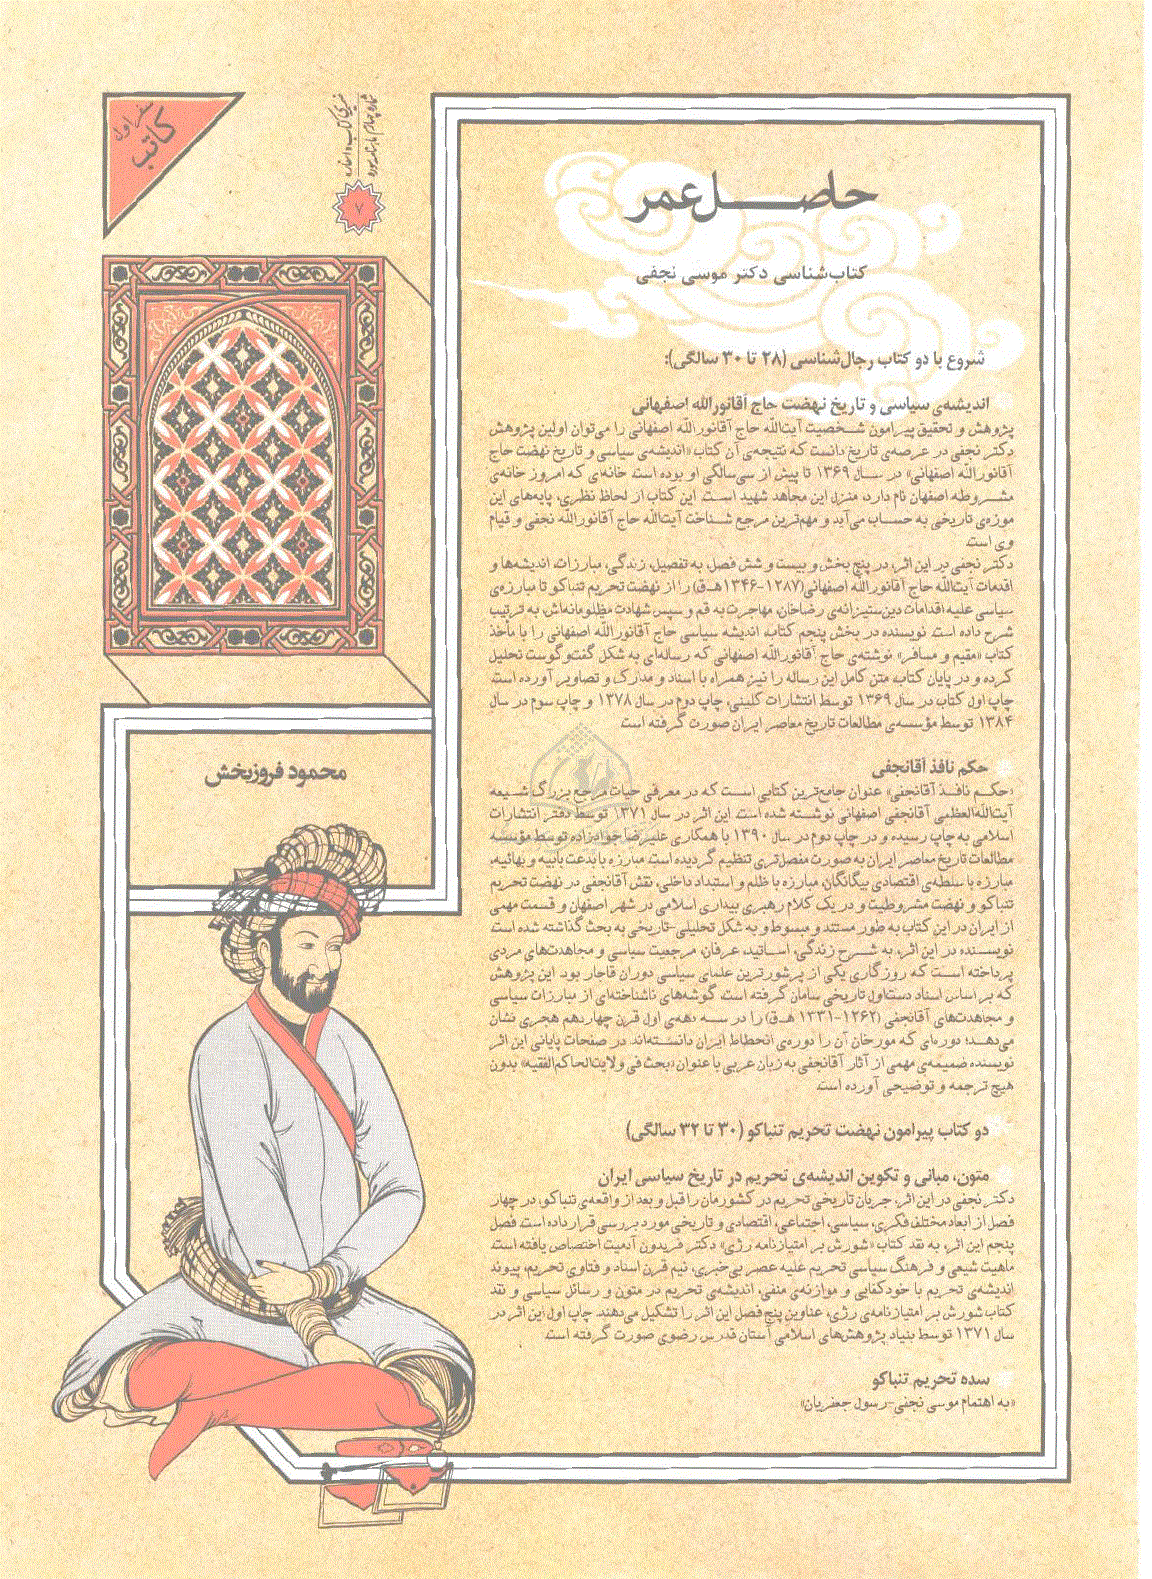 سفر اول
کاتب
ضمیمه‌ی کتاب «اسفار»
شماره چهارم ماهنامه سوره
۷
حاصل عمر
کتاب‌شناسی دکتر موسی نجفی
شروع با دو کتاب رجال‌شناسی (۲۸ تا ۳۰ سالگی):
اندیشه‌ی سیاسی و تاریخ نهضت حاج آقانورالله اصفهانی
پژوهش و تحقیق پیرامون شخصیت آیت‌الله حاج آقانورالله اصفهانی را می‌توان اولین پژوهش
دکتر نجفی در عرصه‌ی تاریخ دانست که نتیجه‌ی آن کتاب «اندیشه‌ی سیاسی و تاریخ نهضت حاج
آقانورالله اصفهانی» در سال ۱۳۶۹ تا پیش از سی‌سالگی او بوده است. خانه‌ی که امروز خانه‌ی
مشروطه اصفهان نام دارد، منزل این مجاهد شهید است. این کتاب از لحاظ نظری، پایه‌های این
موزه‌ی تاریخی به حساب می‌آید و مهم‌ترین مرجع شناخت آیت‌الله حاج آقانورالله نجفی و قیام
وی است.
دکتر نجفی در این اثر، در پنج بخش و بیست و شش فصل، به تفصیل، زندگی، مبارزات، اندیشه‌ها و
اقدمات آیت‌الله حاج آقانورالله اصفهانی(۱۲۸۷-۱۳۴۶هـ‌ق) را از نهضت تحریم تنباکو تا مبارزه‌ی
سیاسی علیه اقدامات دین‌ستیزانه‌ی رضاخان، مهاجرت به قم و سپس شهادت مظلومانه‌اش به ترتیب
شرح داده است. نویسنده در بخش پنجم کتاب، اندیشه سیاسی حاج آقانورالله اصفهانی را با مأخذ
کتاب «مقیم و مسافر» نوشته‌ی حاج آقانورالله اصفهانی که رساله‌ای به شکل گفت‌وگوست تحلیل
کرده و در پایان کتاب، متن کامل این رساله را نیز همراه با اسناد و مدارک و تصاویر آورده است.
چاپ اول کتاب در سال ۱۳۶۹ توسط انتشارات کلینی، چاپ دوم در سال ۱۳۷۸ و چاپ سوم در سال
۱۳۸۴ توسط مؤسسه‌ی مطالعات تاریخ معاصر ایران صورت گرفته است.
حکم نافذ آقانجفی
«حکم نافذ آقانجفی» عنوان جامع‌ترین کتابی است که در معرفی حیات مرجع بزرگ شیعه
آیت‌الله‌العظمی آقانجفی اصفهانی نوشته شده است. این اثر در سال ۱۳۷۱ توسط دفتر انتشارات
اسلامی به چاپ رسیده و در چاپ دوم در سال ۱۳۹۰ با همکاری علیرضا جوادزاده توسط مؤسسه
مطالعات تاریخ معاصر ایران به صورت مفصل‌تری تنظیم گردیده است. مبارزه با بدعت بابیه و بهائیه،
مبارزه با سلطه‌ی اقتصادی بیگانگان، مبارزه با ظلم و استبداد داخلی، نقش آقانجفی در نهضت تحریم
تنباکو و نهضت مشروطیت و در یک کلام رهبری بیداری اسلامی در شهر اصفهان و قسمت مهمی
از ایران در این کتاب به طور مستند و مبسوط و به شکل تحلیلی-تاریخی به بحث گذاشته شده است.
نویسنده در این اثر، به شرح زندگی، اساتید، عرفان، مرجعیت سیاسی و مجاهدت‌های مردی
پرداخته است که روزگاری یکی از پرشورترین علمای سیاسی دوران قاجار بود. این پژوهش
که بر اساس اسناد دست‌اول تاریخی سامان گرفته است، گوشه‌های ناشناخته‌ای از مبارزات سیاسی
و مجاهدت‌های آقانجفی (۱۲۶۲-۱۳۳۱ هـ‌ق) را در سه دهه‌ی اول قرن چهاردهم هجری نشان
می‌دهد؛ دوره‌ای که مورخان آن را دوره‌ی انحطاط ایران دانسته‌اند. در صفحات پایانی این اثر
نویسنده ضمیمه‌ی مهمی از آثار آقانجفی به زبان عربی با عنوان «بحث فی ولایت‌الحاکم‌الفقیه» بدون
هیچ ترجمه و توضیحی آورده است.
دو کتاب پیرامون نهضت تحریم تنباکو (۳۰ تا ۳۲ سالگی)
متون، مبانی و تکوین اندیشه‌ی تحریم در تاریخ سیاسی ایران
دکتر نجفی در این اثر، جریان تاریخی تحریم در کشورمان را قبل و بعد از واقعه‌ی تنباکو، در چهار
فصل از ابعاد مختلف فکری، سیاسی، اجتماعی، اقتصادی و تاریخی مورد بررسی قرار داده است. فصل
پنجم این اثر، به نقد کتاب «شورش بر امتیازنامه رژی» دکتر فریدون آدمیت اختصاص یافته است.
ماهیت شیعی و فرهنگ سیاسی تحریم علیه عصر بی‌خبری، نیم قرن اسناد و فتاوی تحریم، پیوند
اندیشه‌ی تحریم با خودکفایی و موازنه‌ی منفی، اندیشه‌ی تحریم در متون و رسائل سیاسی و نقد
کتاب شورش بر امتیازنامه‌ی رژی، عناوین پنج فصل این اثر را تشکیل می‌دهند. چاپ اول این اثر در
سال ۱۳۷۱ توسط بنیاد پژوهش‌های اسلامی آستان قدس رضوی صورت گرفته است.
سده تحریم تنباکو
«به اهتمام موسی نجفی-رسول جعفریان»
محمود فروزبخش